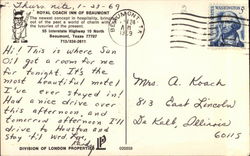 Thurs. nite, 1-23-69
ROYAL COACH INN OF BEAUMONT
The newest concept in hospitality, bringing
out of the past a world of charm with all
the luxuries of the present.
55 Interstate Highway 10 North
Beaumont, Texas 77707
Hi! This is where Sun
Oil got a room for me
for tonight. It's the
most beautiful motel
I've ever stayed in!
Had a nice drive over
this afternoon, and
tomorrow afternoon I'll
drive to Houston and
stay til Wed.
DIVISION OF LONDON PROPERTIES
BEAUMONT
1969
WASHINGTON
5¢
Mrs. A. Koach
813 East Lincoln
De Kalb, Illinois
60115